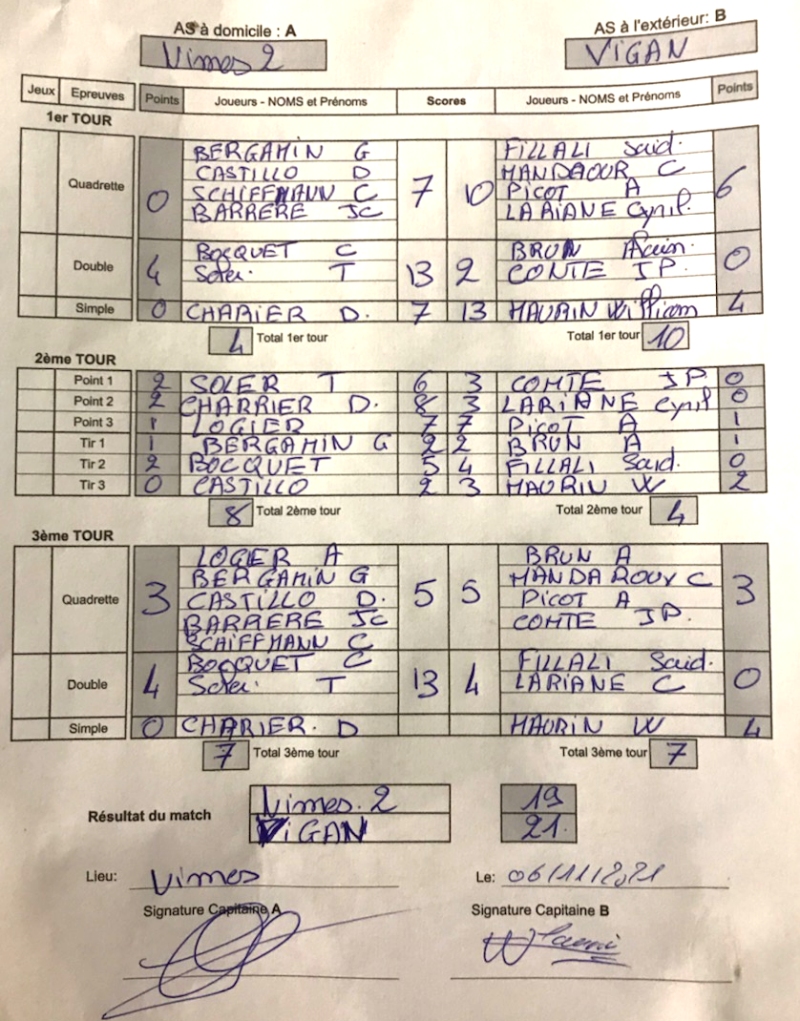 AS à domicile : A AS à l'extérieur: B
Nimes 2 VIGAN
Jeux Epreuves Points Joueurs - NOMS et Prénoms Scores Joueurs - NOMS et Prénoms Points
1er TOUR
BERGAMIN G FILLALI Said.
CASTILLO D HANDAOUR C
Quadrette 0 SCHIFFMANN C 7 10 PICOT A 6
BARRERE JC LARIANE Cyril.
BOCQUET C BRUN
Double 4 Soler. T 13 2 CONTE JP. 0
Simple 0 CHARIER D. 7 13 MAURIN William 4
4 Total 1er tour Total 1er tour 10
2ème TOUR
Point 1 2 SOLER T 6 3 COMTE JP. 0
Point 2 2 CHARRIER D. 8 3 LARIANE Cyril 0
Point 3 1 LOGIER 7 7 PICOT A 1
Tir 1 1 BERGAMIN G 2 2 BRUN A 1
Tir 2 2 BOCQUET 5 4 FILLALI Said. 0
Tir 3 0 CASTILLO 2 3 MAURIN W 2
8 Total 2ème tour Total 2ème tour 4
3ème TOUR
LOGER A BRUN A
BERGAMIN G HANDAROUY C
Quadrette 3 CASTILLO D. 5 5 PICOT A 3
BARRERE JC COMTE JP.
SCHIFFMANN C
BOCQUET C FILLALI Said.
Double 4 Soler. T 13 4 LARIANE C 0
Simple 0 CHARIER. D MAURIN W 4
7 Total 3ème tour Total 3ème tour 7
Résultat du match Nimes. 2 19
VIGAN 21.
Lieu: Nimes Le: 06/11/2021
Signature Capitaine A Signature Capitaine B